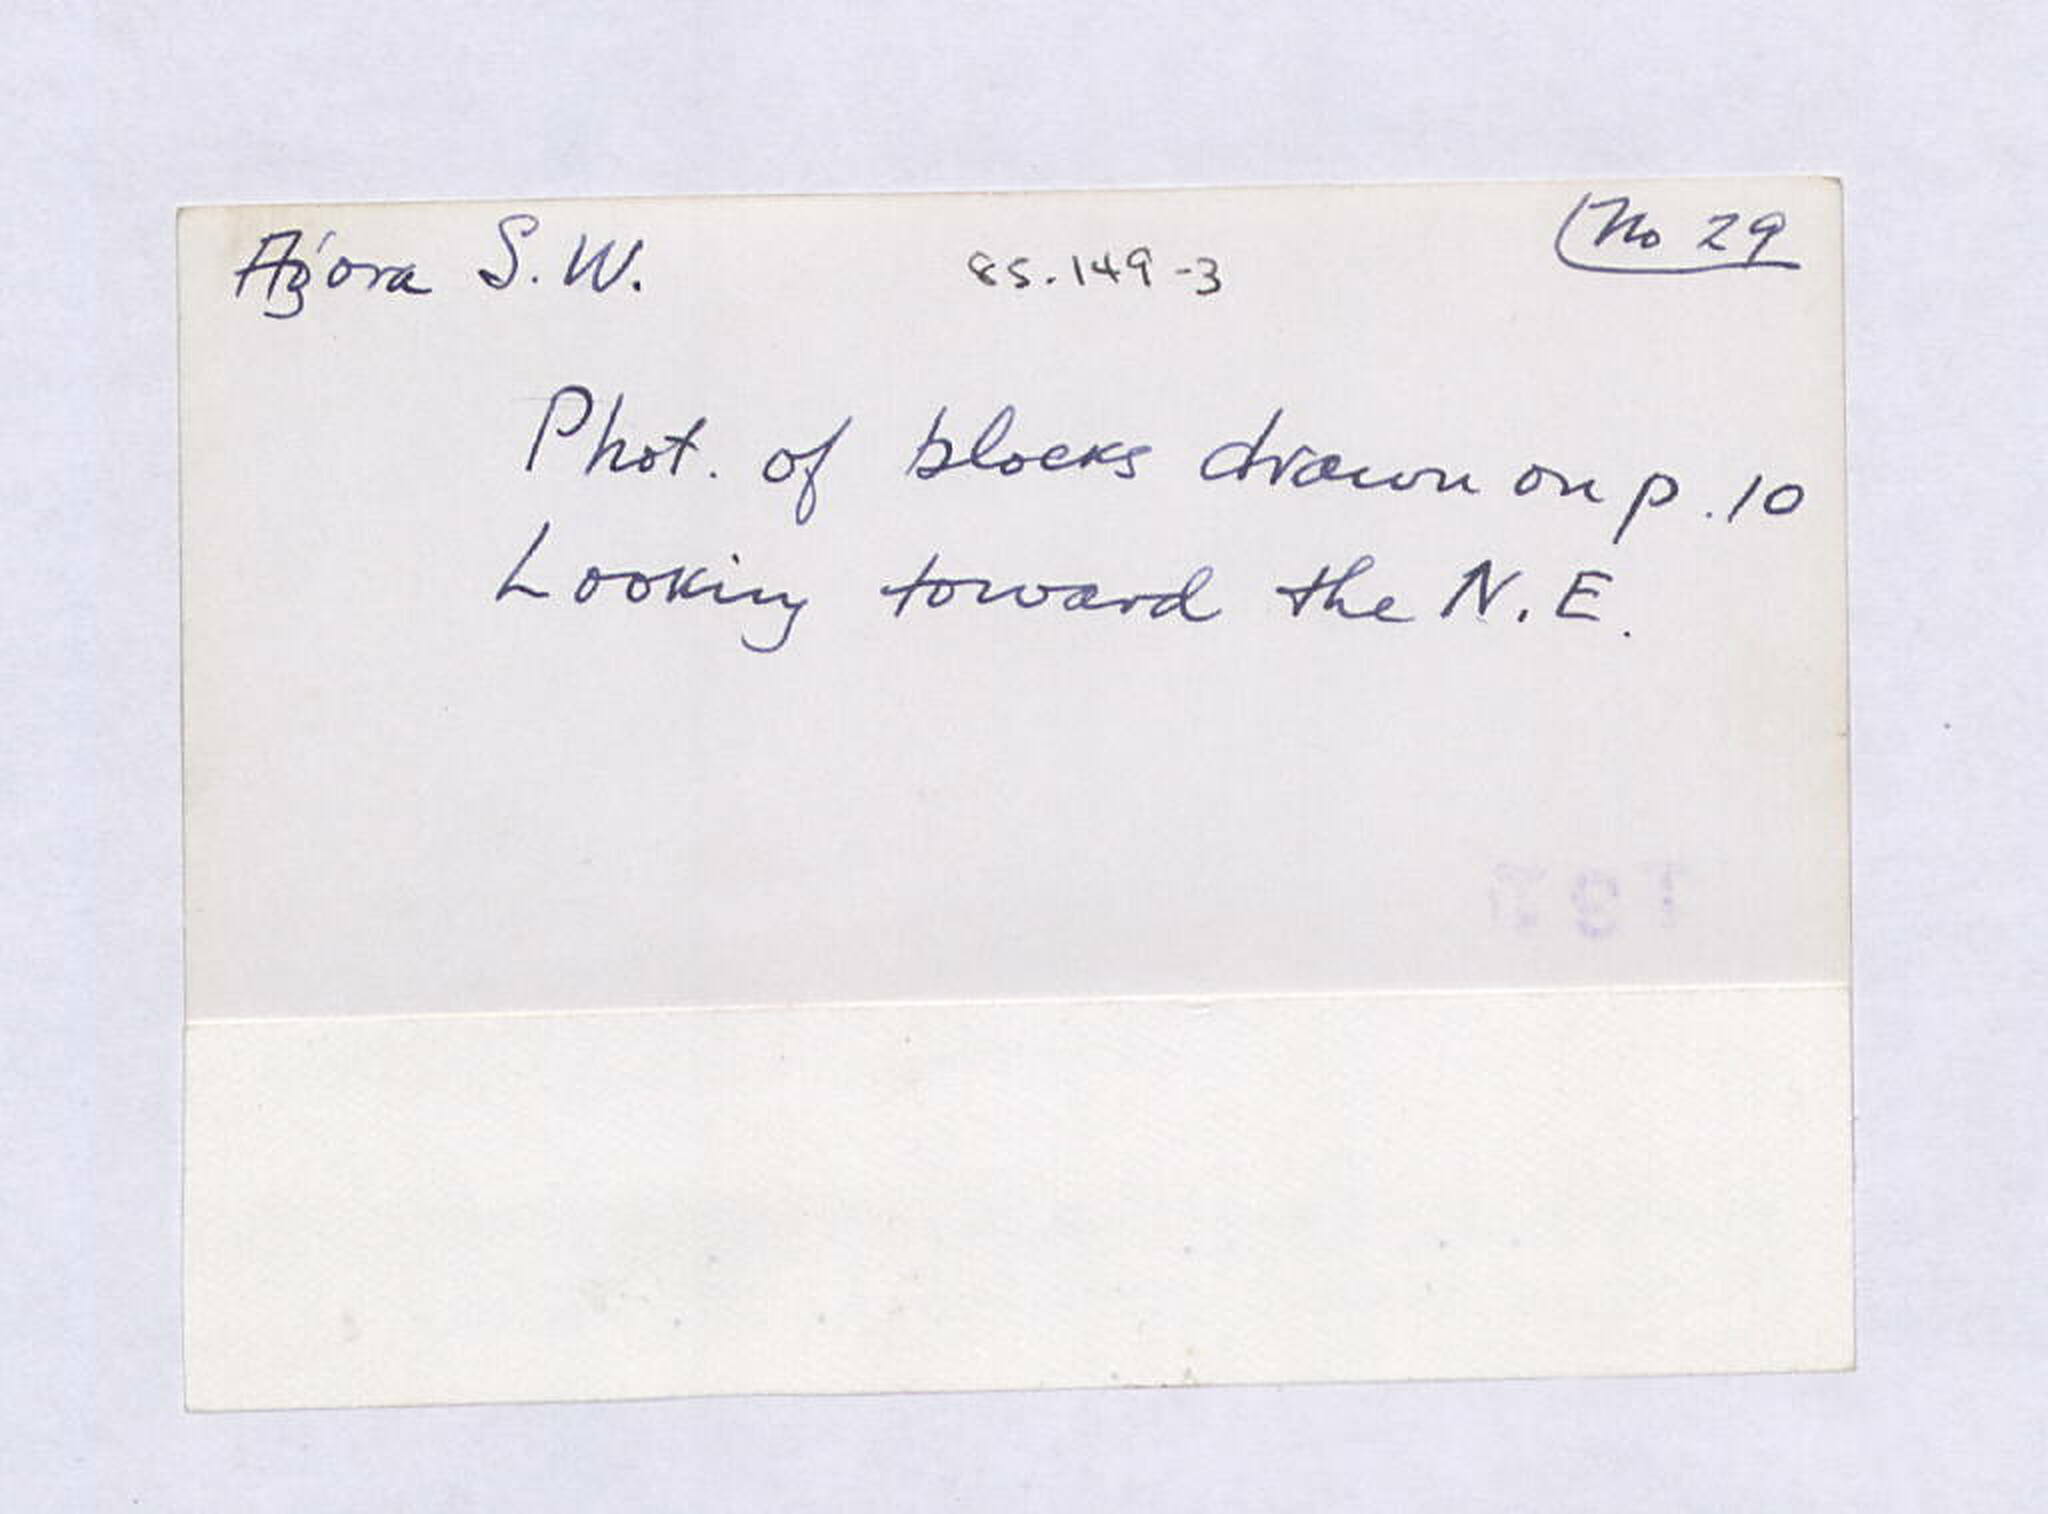 Agora S.W. 85.149-3 No 29
Phot. of blocks drawn on p.10
Looking toward the N.E.